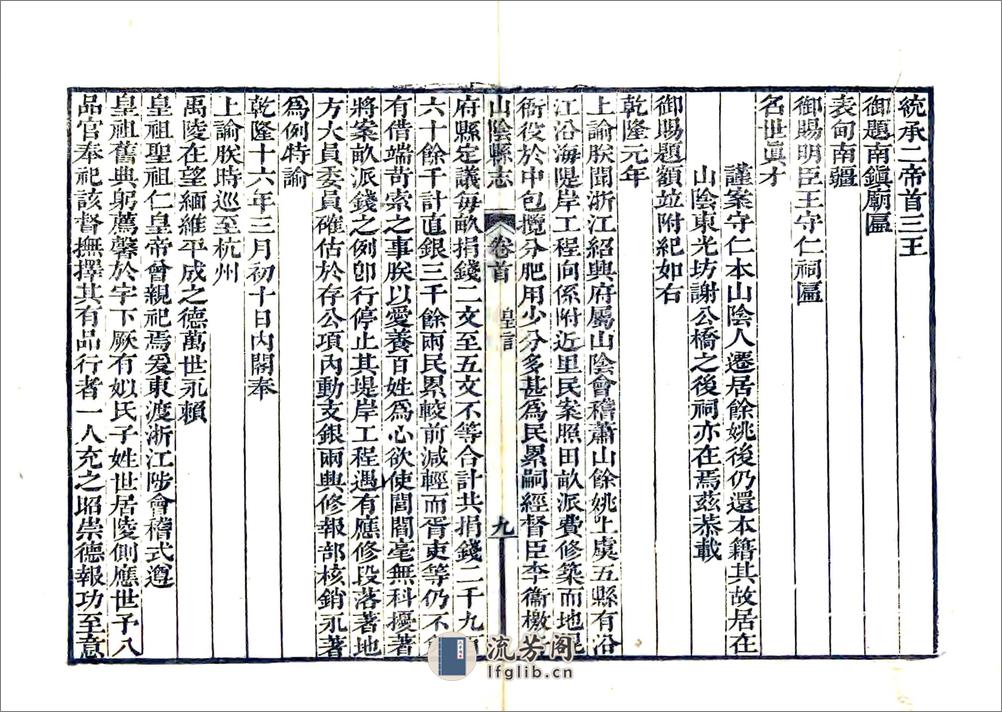 統承二帝首三王
御題南鎮廟匾
表甸南疆
御賜明臣王守仁祠匾
名世眞才
謹案守仁本山陰人遷居餘姚後仍還本籍其故居在
山陰東光坊謝公橋之後祠亦在焉茲恭載
御賜題額竝附紀如右
乾隆元年
上諭朕聞浙江紹興府屬山陰會稽蕭山餘姚上虞五縣有沿
江沿海隄岸工程向係附近里民案照田畝派費修築而地
衙役於中包攬分肥用少分多甚爲民累嗣經督臣李衞檄
山陰縣志 卷首 皇言 九
府縣定議每畝捐錢二文至五文不等合計共捐錢二千九
六十餘千計直銀三千餘兩民累較前減輕而胥吏等仍不
有借端苛索之事朕以愛養百姓爲心欲使閭閻毫無科擾著
將案畝派錢之例卽行停止其堤岸工程遇有應修段落著地
方大員委員確估於存公項內動支銀兩興修報部核銷永著
爲例特諭
乾隆十六年三月初十日內閣奉
上諭朕時巡至杭州
禹陵在望緬維平成之德萬世永賴
皇祖聖祖仁皇帝曾親祀焉爰東渡浙江陟會稽式遵
皇祖舊典躬薦馨於宇下厥有姒氏子姓世居陵側應世予八
品官奉祀該督撫擇其有品行者一人充之昭崇德報功至意
流芳阁
lfglib.cn